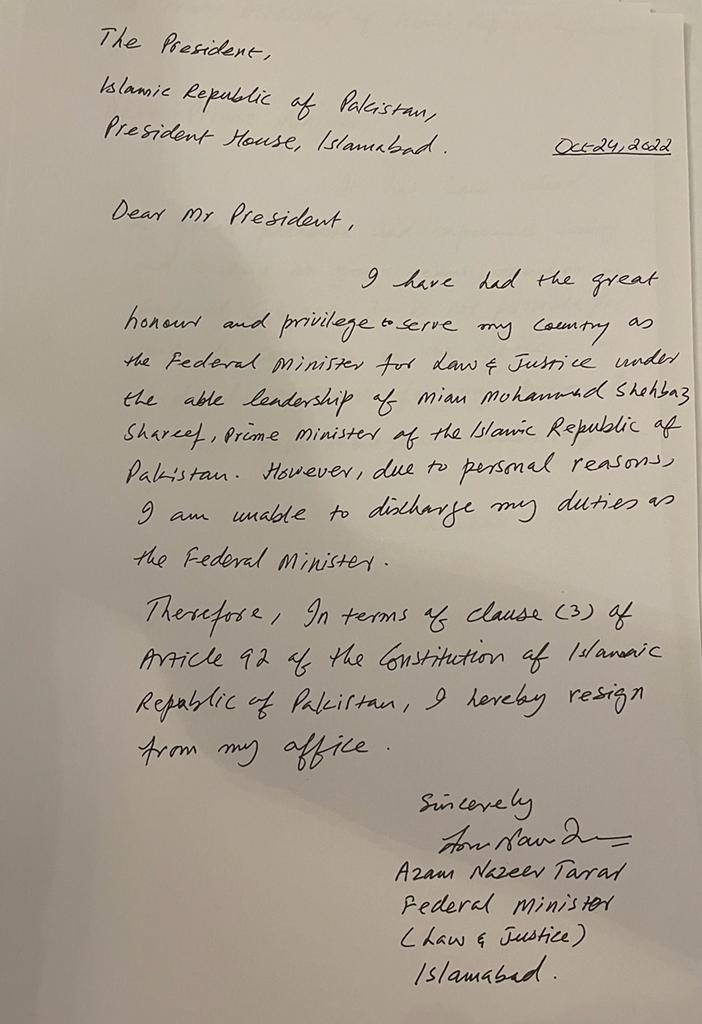 The President,
Islamic Republic of Pakistan,
President House, Islamabad.
Oct 24, 2022
Dear Mr President,
I have had the great
honour and privilege to serve my country as
the Federal Minister for Law & Justice under
the able leadership of Mian Mohammad Shehbaz
Shareef, Prime Minister of the Islamic Republic of
Pakistan. However, due to personal reasons,
I am unable to discharge my duties as
the Federal Minister.
Therefore, In terms of clause (3) of
Article 92 of the Constitution of Islamic
Republic of Pakistan, I hereby resign
from my office.
Sincerely
Azam Nazeer Tarar
Federal Minister
(Law & Justice)
Islamabad.